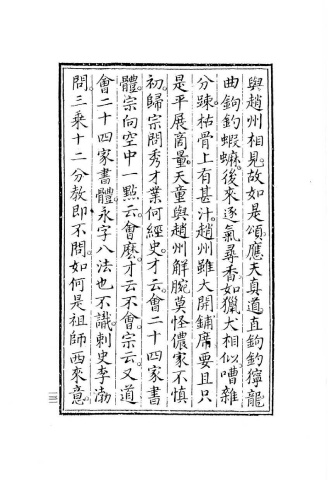 與趙州相見。故如是頌。應天真道。直鉤釣獰龍
曲鉤釣蝦蟆。後來逐氣尋香。如獵犬相似。嘈雜
分踈。枯骨上有甚汁。趙州雖大開鋪席。要且只
是平展商量。天童與趙州解腕。莫怪儂家不慎
初。歸宗問秀才。業何經史。才云。會二十四家書
體。宗向空中一點云。會麼。才云不會。宗云。又道
會二十四家書體。永字八法也不識。刺史李渤
問。三乘十二分教即不問。如何是祖師西來意。